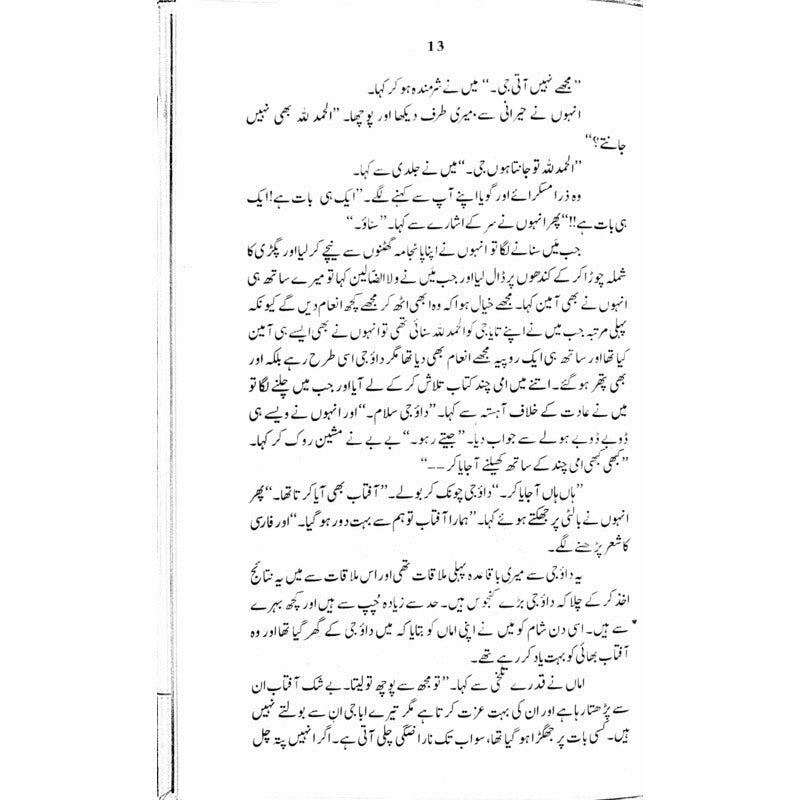 13
”مجھے نہیں آتی جی۔“ میں نے شرمندہ ہو کر کہا۔
انہوں نے حیرانی سے میری طرف دیکھا اور پوچھا۔ ”الحمد للہ بھی نہیں
جانتے؟“
”الحمد للہ تو جانتا ہوں جی۔“ میں نے جلدی سے کہا۔
وہ ذرا مسکرائے اور گویا اپنے آپ سے کہنے لگے۔ ”ایک ہی بات ہے! ایک
ہی بات ہے!!“ پھر انہوں نے سر کے اشارے سے کہا۔ ”سناؤ۔“
جب میں سنانے لگا تو انہوں نے اپنا پائجامہ گھٹنوں سے نیچے کر لیا اور پگڑی کا
شملہ چوڑا کر کے کندھوں پر ڈال لیا اور جب میں نے ولا الضالین کہا تو میرے ساتھ ہی
انہوں نے بھی آمین کہا۔ مجھے خیال ہوا کہ وہ ابھی اٹھ کر مجھے کچھ انعام دیں گے کیونکہ
پہلی مرتبہ جب میں نے اپنے تایا جی کو الحمد للہ سنائی تھی تو انہوں نے بھی ایسے ہی آمین
کہا تھا اور ساتھ ہی ایک روپیہ مجھے انعام بھی دیا تھا مگر داؤ جی اسی طرح رہے بلکہ اور
بھی پتھر ہو گئے۔ اتنے میں امی چند کتاب تلاش کر کے لے آیا اور جب میں چلنے لگا تو
میں نے عادت کے خلاف آہستہ سے کہا۔ ”داؤ جی سلام۔“ اور انہوں نے ویسے ہی
ڈوبے ڈوبے ہولے سے جواب دیا۔ ”جیتے رہو۔“ بے بے نے مشین روک کر کہا۔
”کبھی کبھی امی چند کے ساتھ کھیلنے آ جایا کر ––“
”ہاں ہاں آ جایا کر۔“ داؤ جی چونک کر بولے۔ ”آفتاب بھی آیا کرتا تھا۔“ پھر
انہوں نے بالٹی پر جھکتے ہوئے کہا۔ ”ہمارا آفتاب تو ہم سے بہت دور ہو گیا۔“ اور فارسی
کا شعر پڑھنے لگے۔
یہ داؤ جی سے میری باقاعدہ پہلی ملاقات تھی اور اس ملاقات سے میں یہ نتائج
اخذ کر کے چلا کہ داؤ جی بڑے کنجوس ہیں۔ حد سے زیادہ چپ سے ہیں اور کچھ بہرے
سے ہیں۔ اسی دن شام کو میں نے اپنی اماں کو بتایا کہ میں داؤ جی کے گھر گیا تھا اور وہ
آفتاب بھائی کو بہت یاد کر رہے تھے۔
اماں نے قدرے تلخی سے کہا۔ ”تو مجھ سے پوچھ تو لیتا۔ بے شک آفتاب ان
سے پڑھتا رہا ہے اور ان کی بہت عزت کرتا ہے مگر تیرے ابا جی ان سے بولتے نہیں
ہیں۔ کسی بات پر جھگڑا ہو گیا تھا، سو اب تک ناراضگی چلی آتی ہے۔ اگر انہیں پتہ چل